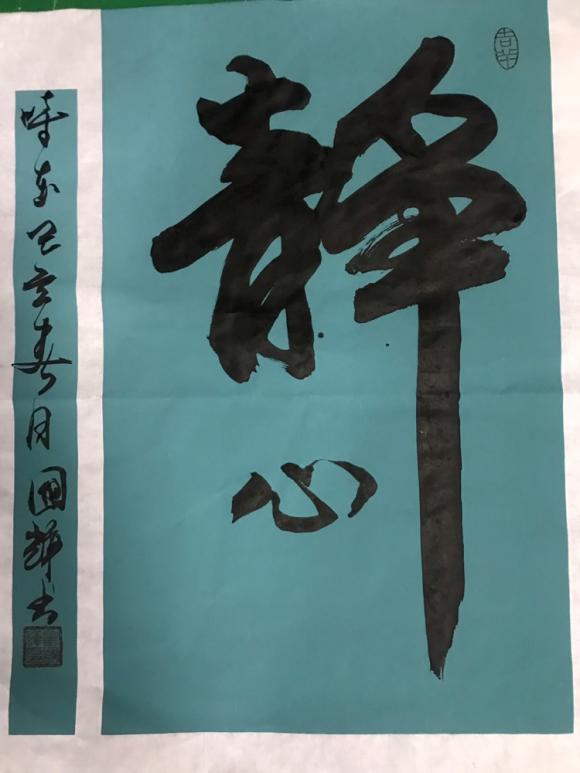 靜心
時在己亥春月國輝书